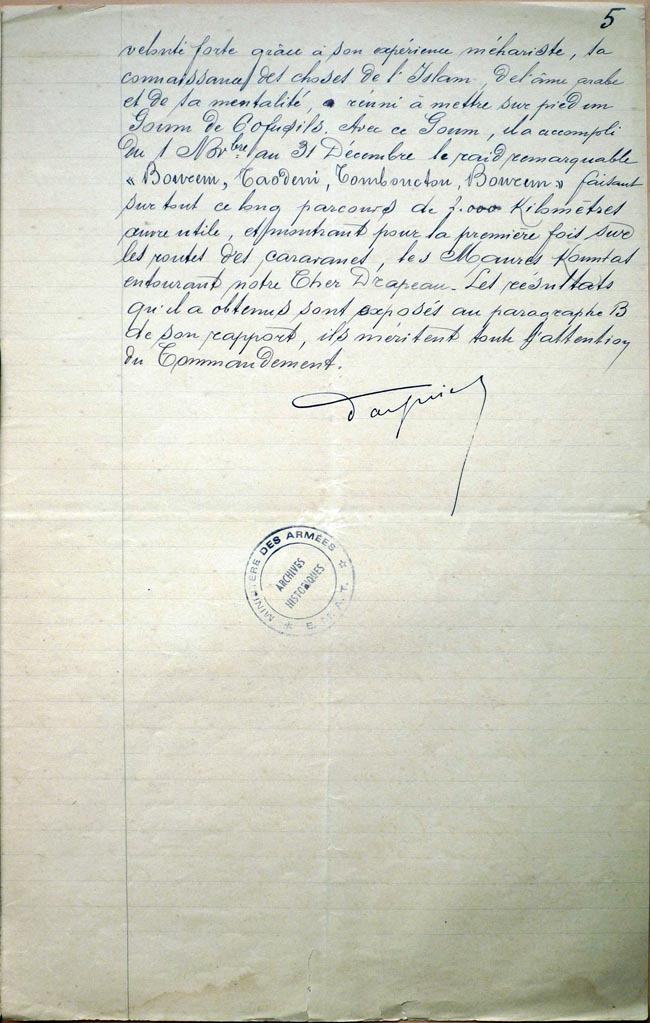 5
volonté forte grâce à son expérience méhariste, sa
connaissance des choses de l'Islam, de l'âme arabe
et de sa mentalité, a réuni à mettre sur pied un
Goum de 60 fusils. Avec ce Goum, il a accompli
du 1 Nvbre au 31 Décembre le raid remarquable
« Bourem, Taodéni, Tombouctou, Bourem » faisant
sur tout ce long parcours de 2.000 Kilomètres
œuvre utile, et montrant pour la première fois sur
les routes des caravanes, les Maures Kountas
entourant notre Cher Drapeau. Les résultats
qu'il a obtenus sont exposés au paragraphe B
de son rapport, ils méritent toute l'attention
du Commandement.
MINISTÈRE DES ARMÉES ☆ E.M.A.T. ☆
ARCHIVES
HISTORIQUES